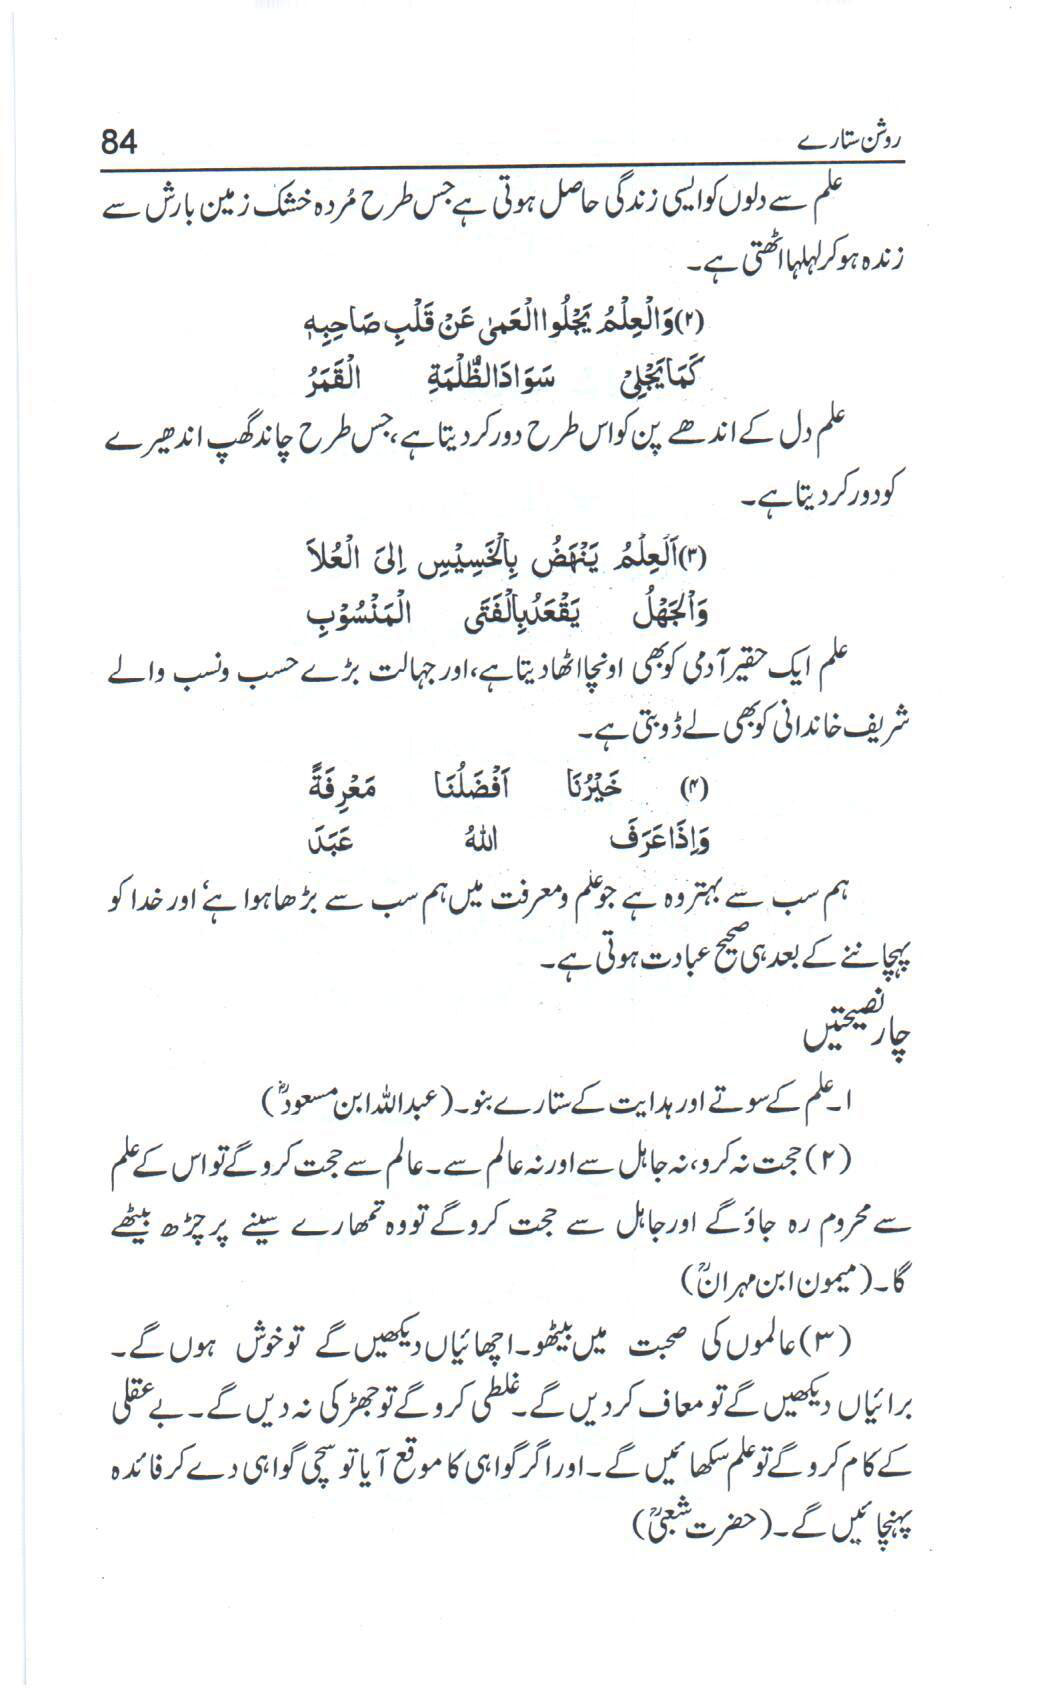 روشن ستارے 84
علم سے دلوں کو ایسی زندگی حاصل ہوتی ہے جس طرح مُردہ خشک زمین بارش سے
زندہ ہو کر لہلہا اٹھتی ہے۔
(۲) وَالْعِلْمُ يَجْلُوا الْعَمٰى عَنْ قَلْبِ صَاحِبِهٖ
كَمَا يَجْلِىْ سَوَادَ الظُّلْمَةِ الْقَمَرُ
علم دل کے اندھے پن کو اس طرح دور کر دیتا ہے، جس طرح چاند گھپ اندھیرے
کو دور کر دیتا ہے۔
(۳) اَلْعِلْمُ يَنْهَضُ بِالْخَسِيْسِ اِلىَ الْعُلاَ
وَالْجَهْلُ يَقْعَدُ بِالْفَتَى الْمَنْسُوْبِ
علم ایک حقیر آدمی کو بھی اونچا اٹھا دیتا ہے، اور جہالت بڑے حسب ونسب والے
شریف خاندانی کو بھی لے ڈوبتی ہے۔
(۴) خَيْرُنَا اَفْضَلُنَا مَعْرِفَةً
وَاِذَا عَرَفَ اللهُ عَبَدَ
ہم سب سے بہتر وہ ہے جو علم و معرفت میں ہم سب سے بڑھا ہوا ہے‘ اور خدا کو
پہچاننے کے بعد ہی صحیح عبادت ہوتی ہے۔
چار نصیحتیں
۱۔ علم کے سوتے اور ہدایت کے ستارے بنو۔ (عبداللہ ابن مسعودؓ)
(۲) حجت نہ کرو، نہ جاہل سے اور نہ عالم سے۔ عالم سے حجت کرو گے تو اس کے علم
سے محروم رہ جاؤ گے اور جاہل سے حجت کرو گے تو وہ تمھارے سینے پر چڑھ بیٹھے
گا۔ (میمون ابن مہرانؒ)
(۳) عالموں کی صحبت میں بیٹھو۔ اچھائیاں دیکھیں گے تو خوش ہوں گے۔
برائیاں دیکھیں گے تو معاف کر دیں گے۔ غلطی کرو گے تو جھڑکی نہ دیں گے۔ بے عقلی
کے کام کرو گے تو علم سکھائیں گے۔ اور اگر گواہی کا موقع آیا تو سچی گواہی دے کر فائدہ
پہنچائیں گے۔ (حضرت شعبیؒ)